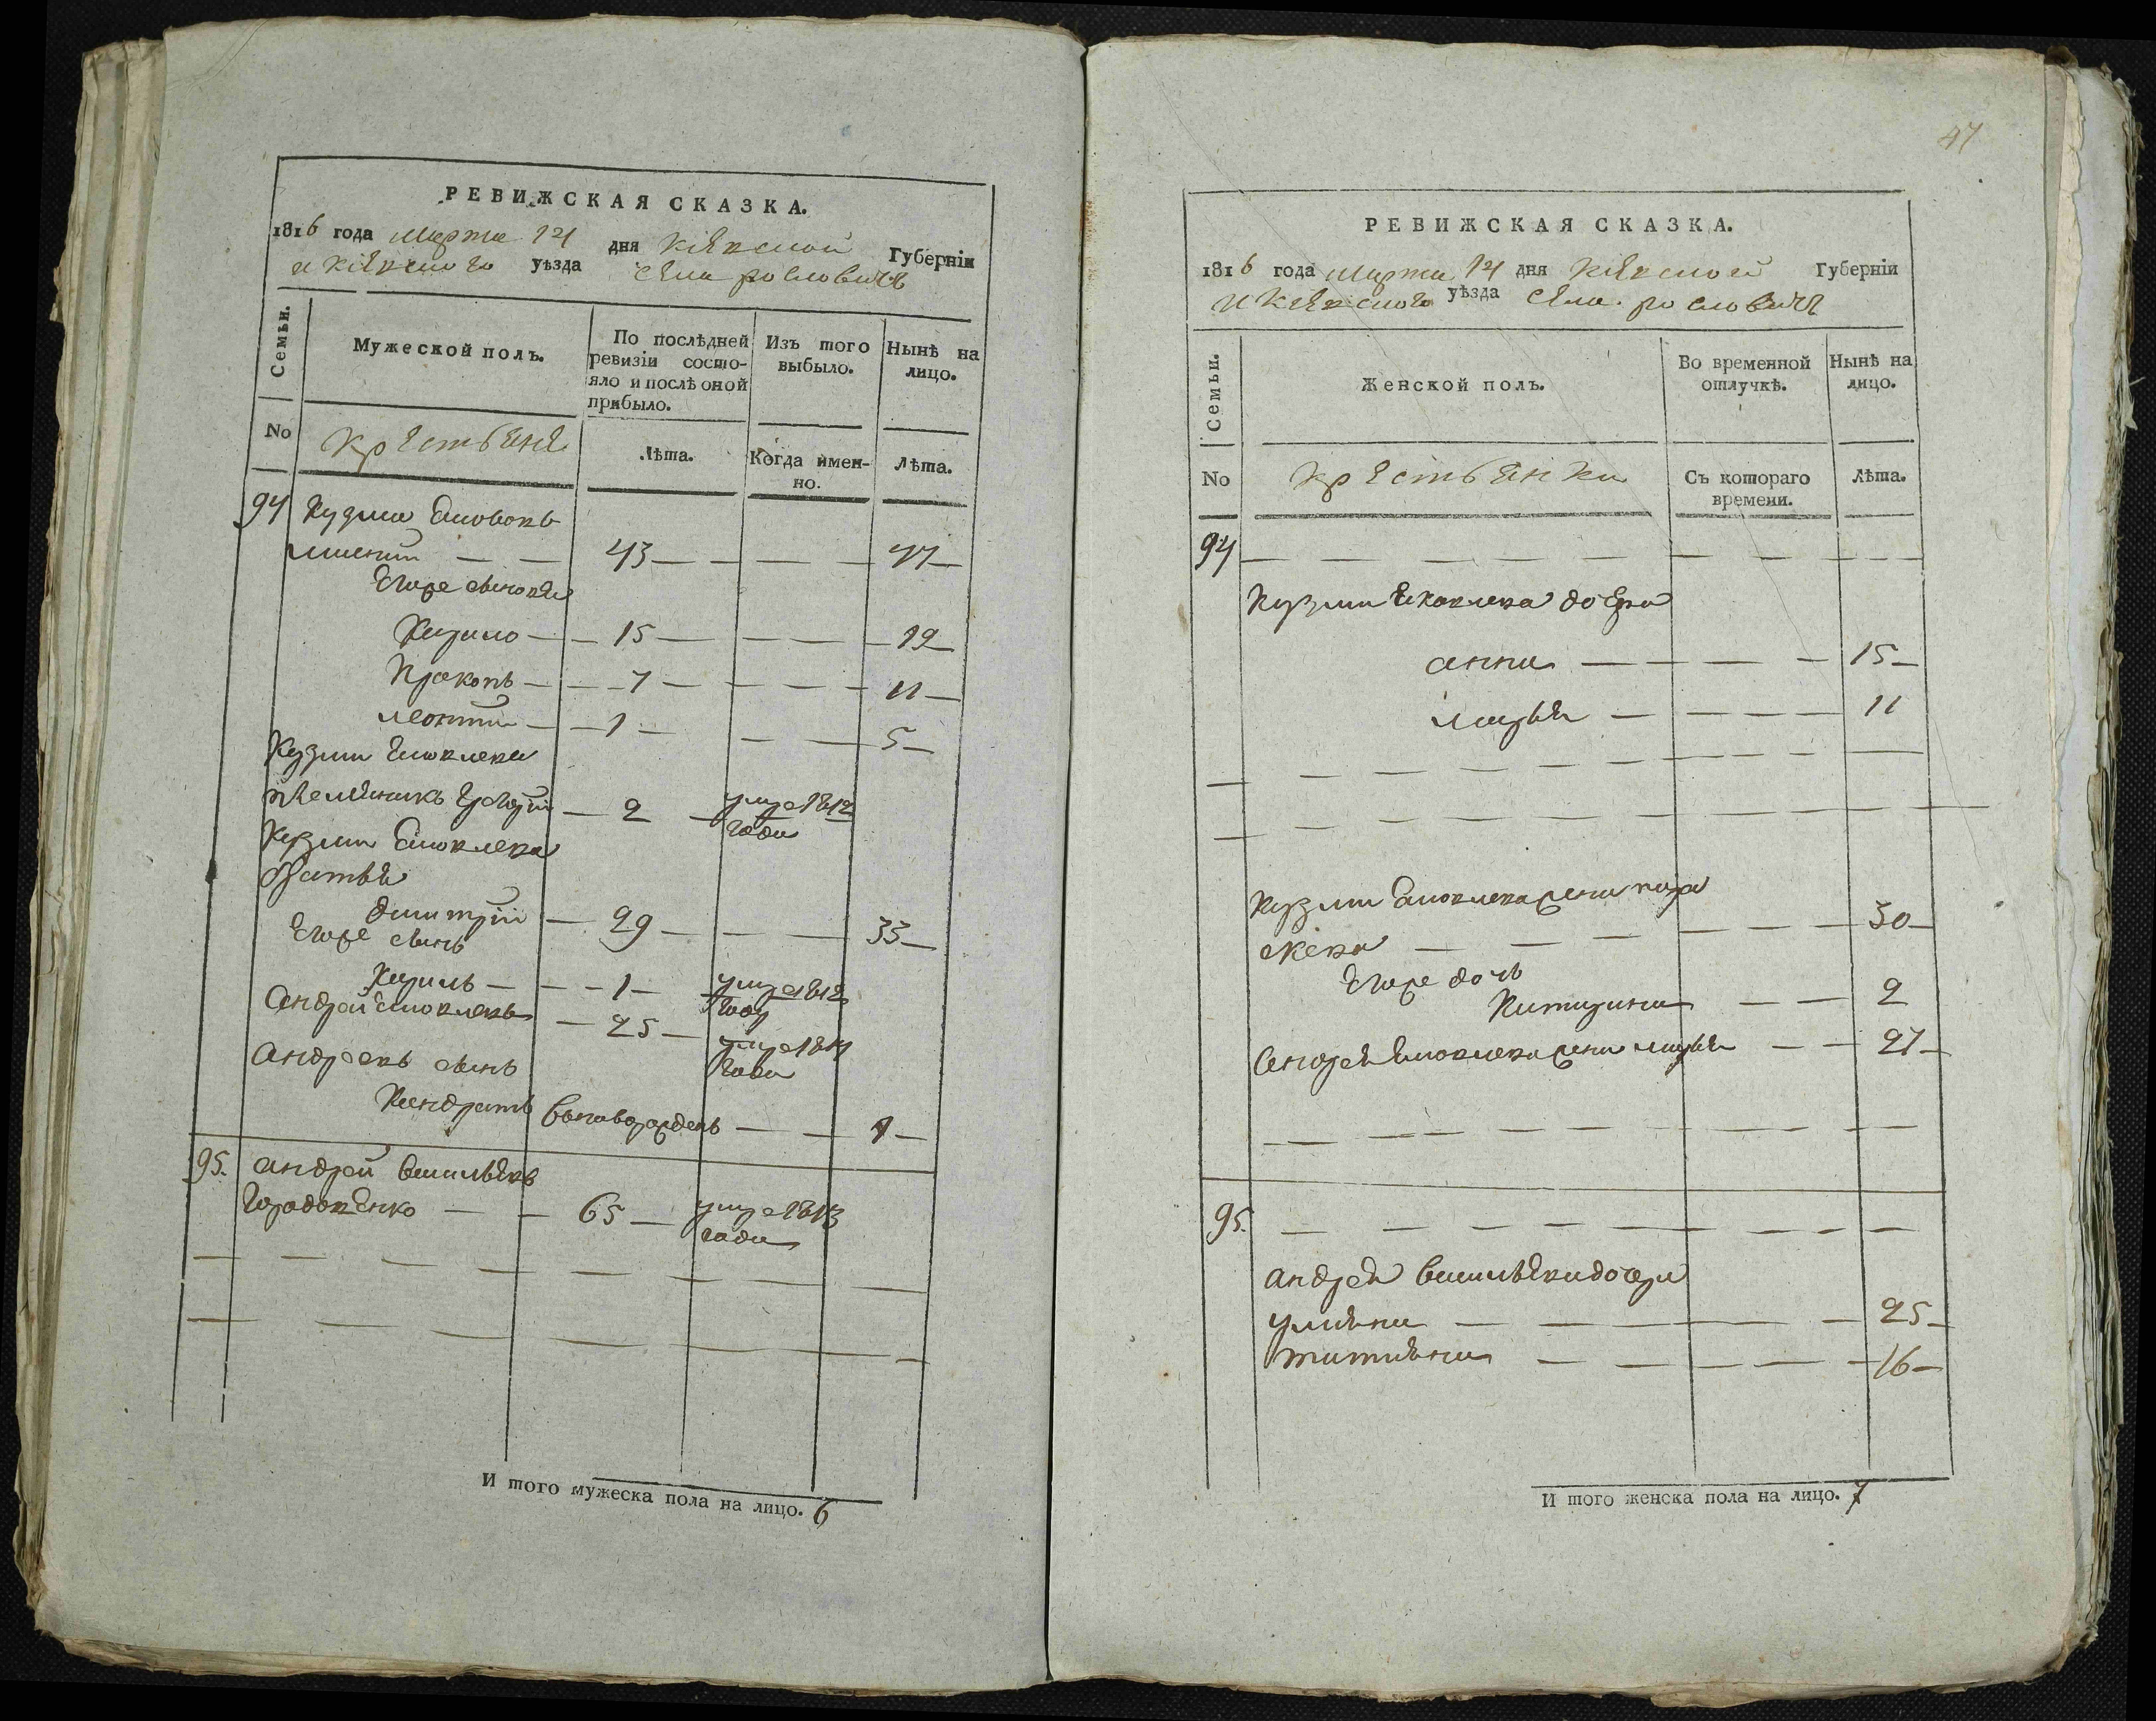 РЕВИЖСКАЯ СКАЗКА.
1816 года марта 14 дня Кіевской Губерніи
и Кіевского уѣзда села рословичъ
Семьи.
Мужеской полъ.
По послѣдней ревизіи состояло и послѣ оной прибыло.
Изъ того выбыло.
Нынѣ на лицо.
No
Крестьяне
Лѣта.
Когда именно.
Лѣта.
94 Кузма
43 47
Его сыновья
15 19
Прокопъ 7 11
леонтій 1 5
Кузми Яковлева
племянникъ 2 умре 1812
года
Кузми Яковлева
братья
димитрій 29 33
Его сынъ
1 умре 1812
году
Андрей Яковлевъ 25 умре 1814
года
Андреевъ сынъ
Кондратъ вноворожденъ 4
95. андрей васильевъ
Городженко 65 умре 1813
года
И того мужеска пола на лицо. 6
47
РЕВИЖСКАЯ СКАЗКА.
1816 года марта 14 дня Кіевской Губерніи
и Кіевского уѣзда села рословичъ
Семьи.
Женской полъ.
Во временной отлучкѣ.
Нынѣ на лицо.
No
крестьянки
Съ котораго времени.
Лѣта.
94
Кузми Яковлева дочери
анна 15
марья 11
Кузми Яковлева жена пара
скева 30
Его дочь
Катерина 2
Андрея Яковлева жена марья 27
95.
андрея василева дочери
улияна 25
татияна 16
И того женска пола на лицо. 7